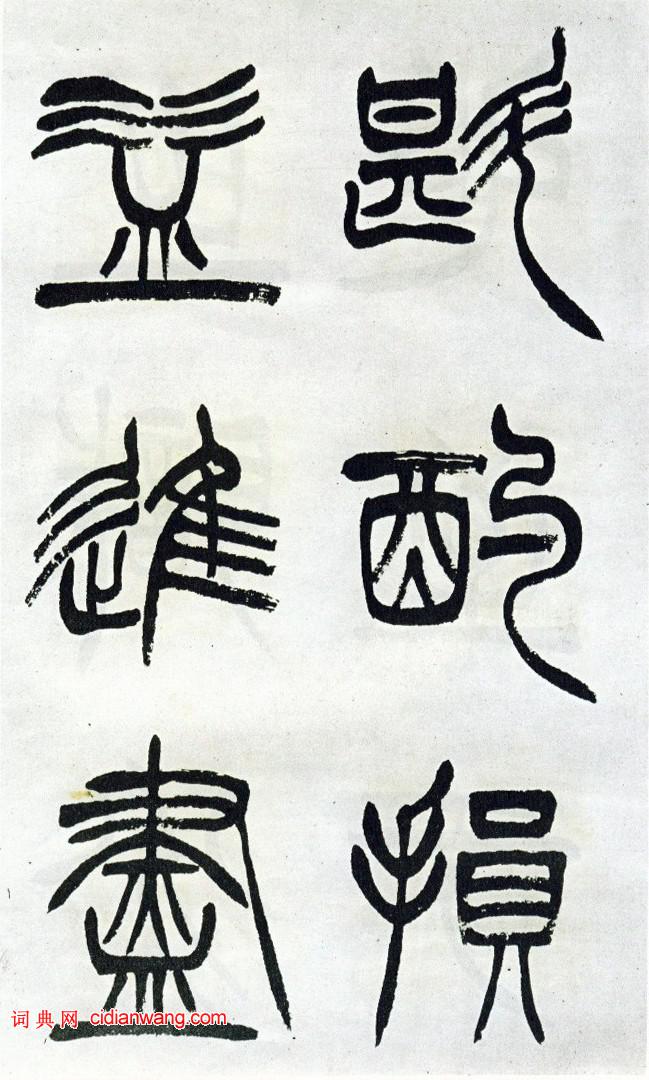 斟酌損
益進盡
词典网 cidianwang.com